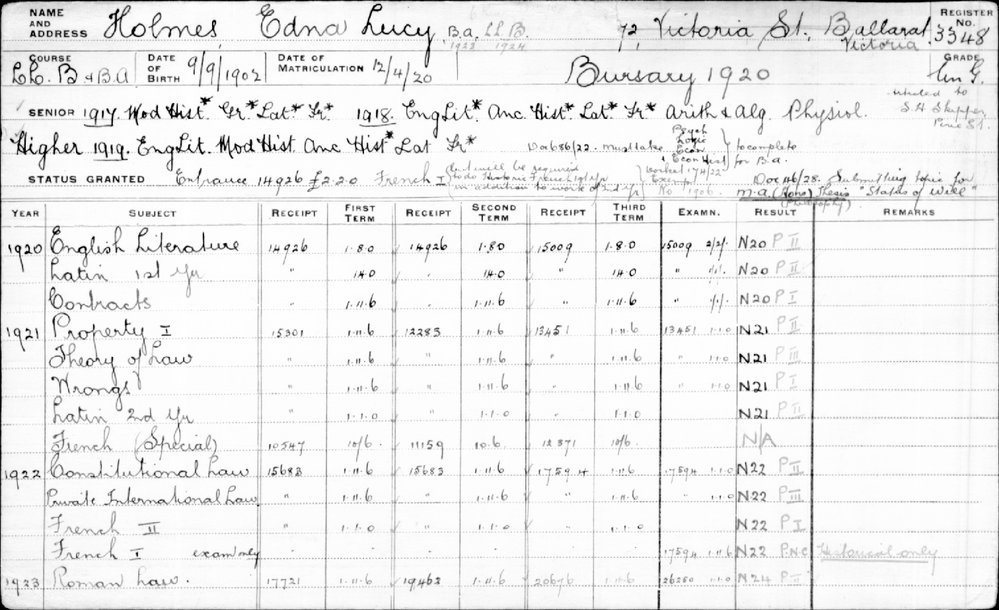 NAME AND ADDRESS Holmes, Edna Lucy, B.A. LL.B. 72, Victoria St, Ballarat, Victoria. REGISTER No. 3348
1922 1924
COURSE LL.B & B.A DATE OF BIRTH 9/9/1902 DATE OF MATRICULATION 12/4/20 Bursary 1920 GRADE
SENIOR 1917. Mod Hist* Gr* Lat* Fr* 1918. Eng Lit* Anc Hist* Lat* Fr* Arith & Alg Physiol.
S.H. Skipper
Pirie St.
Higher 1919. Eng Lit. Mod Hist. Anc Hist* Lat Fr* Doc 686/22. must take Psych Logic Econ & Econ Hist to complete for B.a.
STATUS GRANTED Entrance 14926 £2.2.0 French I but will be required to do Historic French 1st yr in addition to work of 2nd yr
Doc 146/28. Submitting topic for M.A. (Hons) Thesis "States of Will" (Philosophy)
YEAR SUBJECT RECEIPT FIRST TERM RECEIPT SECOND TERM RECEIPT THIRD TERM EXAMN. RESULT REMARKS
1920 English Literature 14926 1.8.0 14926 1.8.0 15009 1.8.0 15009 2/2/. N20 P II
Latin 1st Yr " 14.0 . 14.0 " 14.0 " N20 P II
Contracts " 1.11.6 " 1.11.6 " 1.11.6 " N20 P I
1921 Property I 15301 1.11.6 12283 1.11.6 13451 1.11.6 13451 1.1.0 N21 P II
Theory of Law " 1.11.6 " 1.11.6 " 1.11.6 " 1.1.0 N21 P III
Wrongs " 1.11.6 " 1.11.6 " 1.11.6 " 1.1.0 N21 P I
Latin 2nd Yr " 1.1.0 " 1.1.0 " 1.1.0 N21 P II
French (Special) 10547 10/6. 11159 10.6. 12371 10/6. N/A
1922 Constitutional Law 15683 1.11.6 15683 1.11.6 17594 1.11.6 17594 1.1.0 N22 P II
Private International Law " 1.11.6 " 1.11.6 " 1.11.6 " 1.1.0 N22 P III
French II " 1.1.0 " 1.1.0 " 1.1.0 N22 P I
French I exam only 17594 1.11.6 N22 P.N.C Historical only
1923 Roman Law. 17721 1.11.6 19463 1.11.6 20676 1.11.6 26250 1.1.0 N24 P II